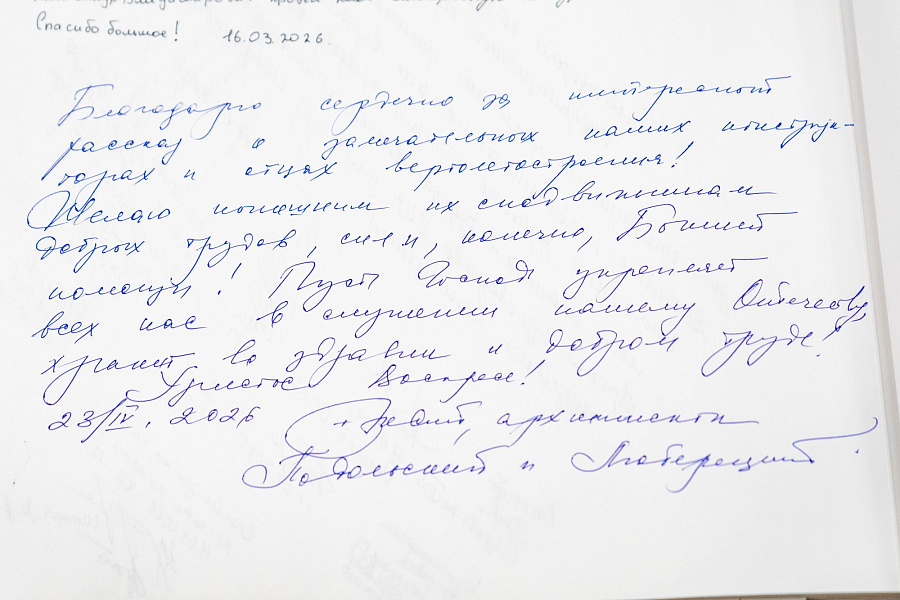 Спасибо большое! 16.03.2026.
Благодарю сердечно за интересный
рассказ о замечательных наших конструк-
торах и отцах вертолетостроения!
Желаю нынешним их сподвижникам
добрых трудов, сил и, конечно, Божией
помощи! Пусть Господь укрепляет
всех нас в служении нашему Отечеству,
хранит во здравии и добром труде!
Христос Воскресе!
23/IV. 2026 + Аксий, архиепископ
Подольский и Люберецкий.